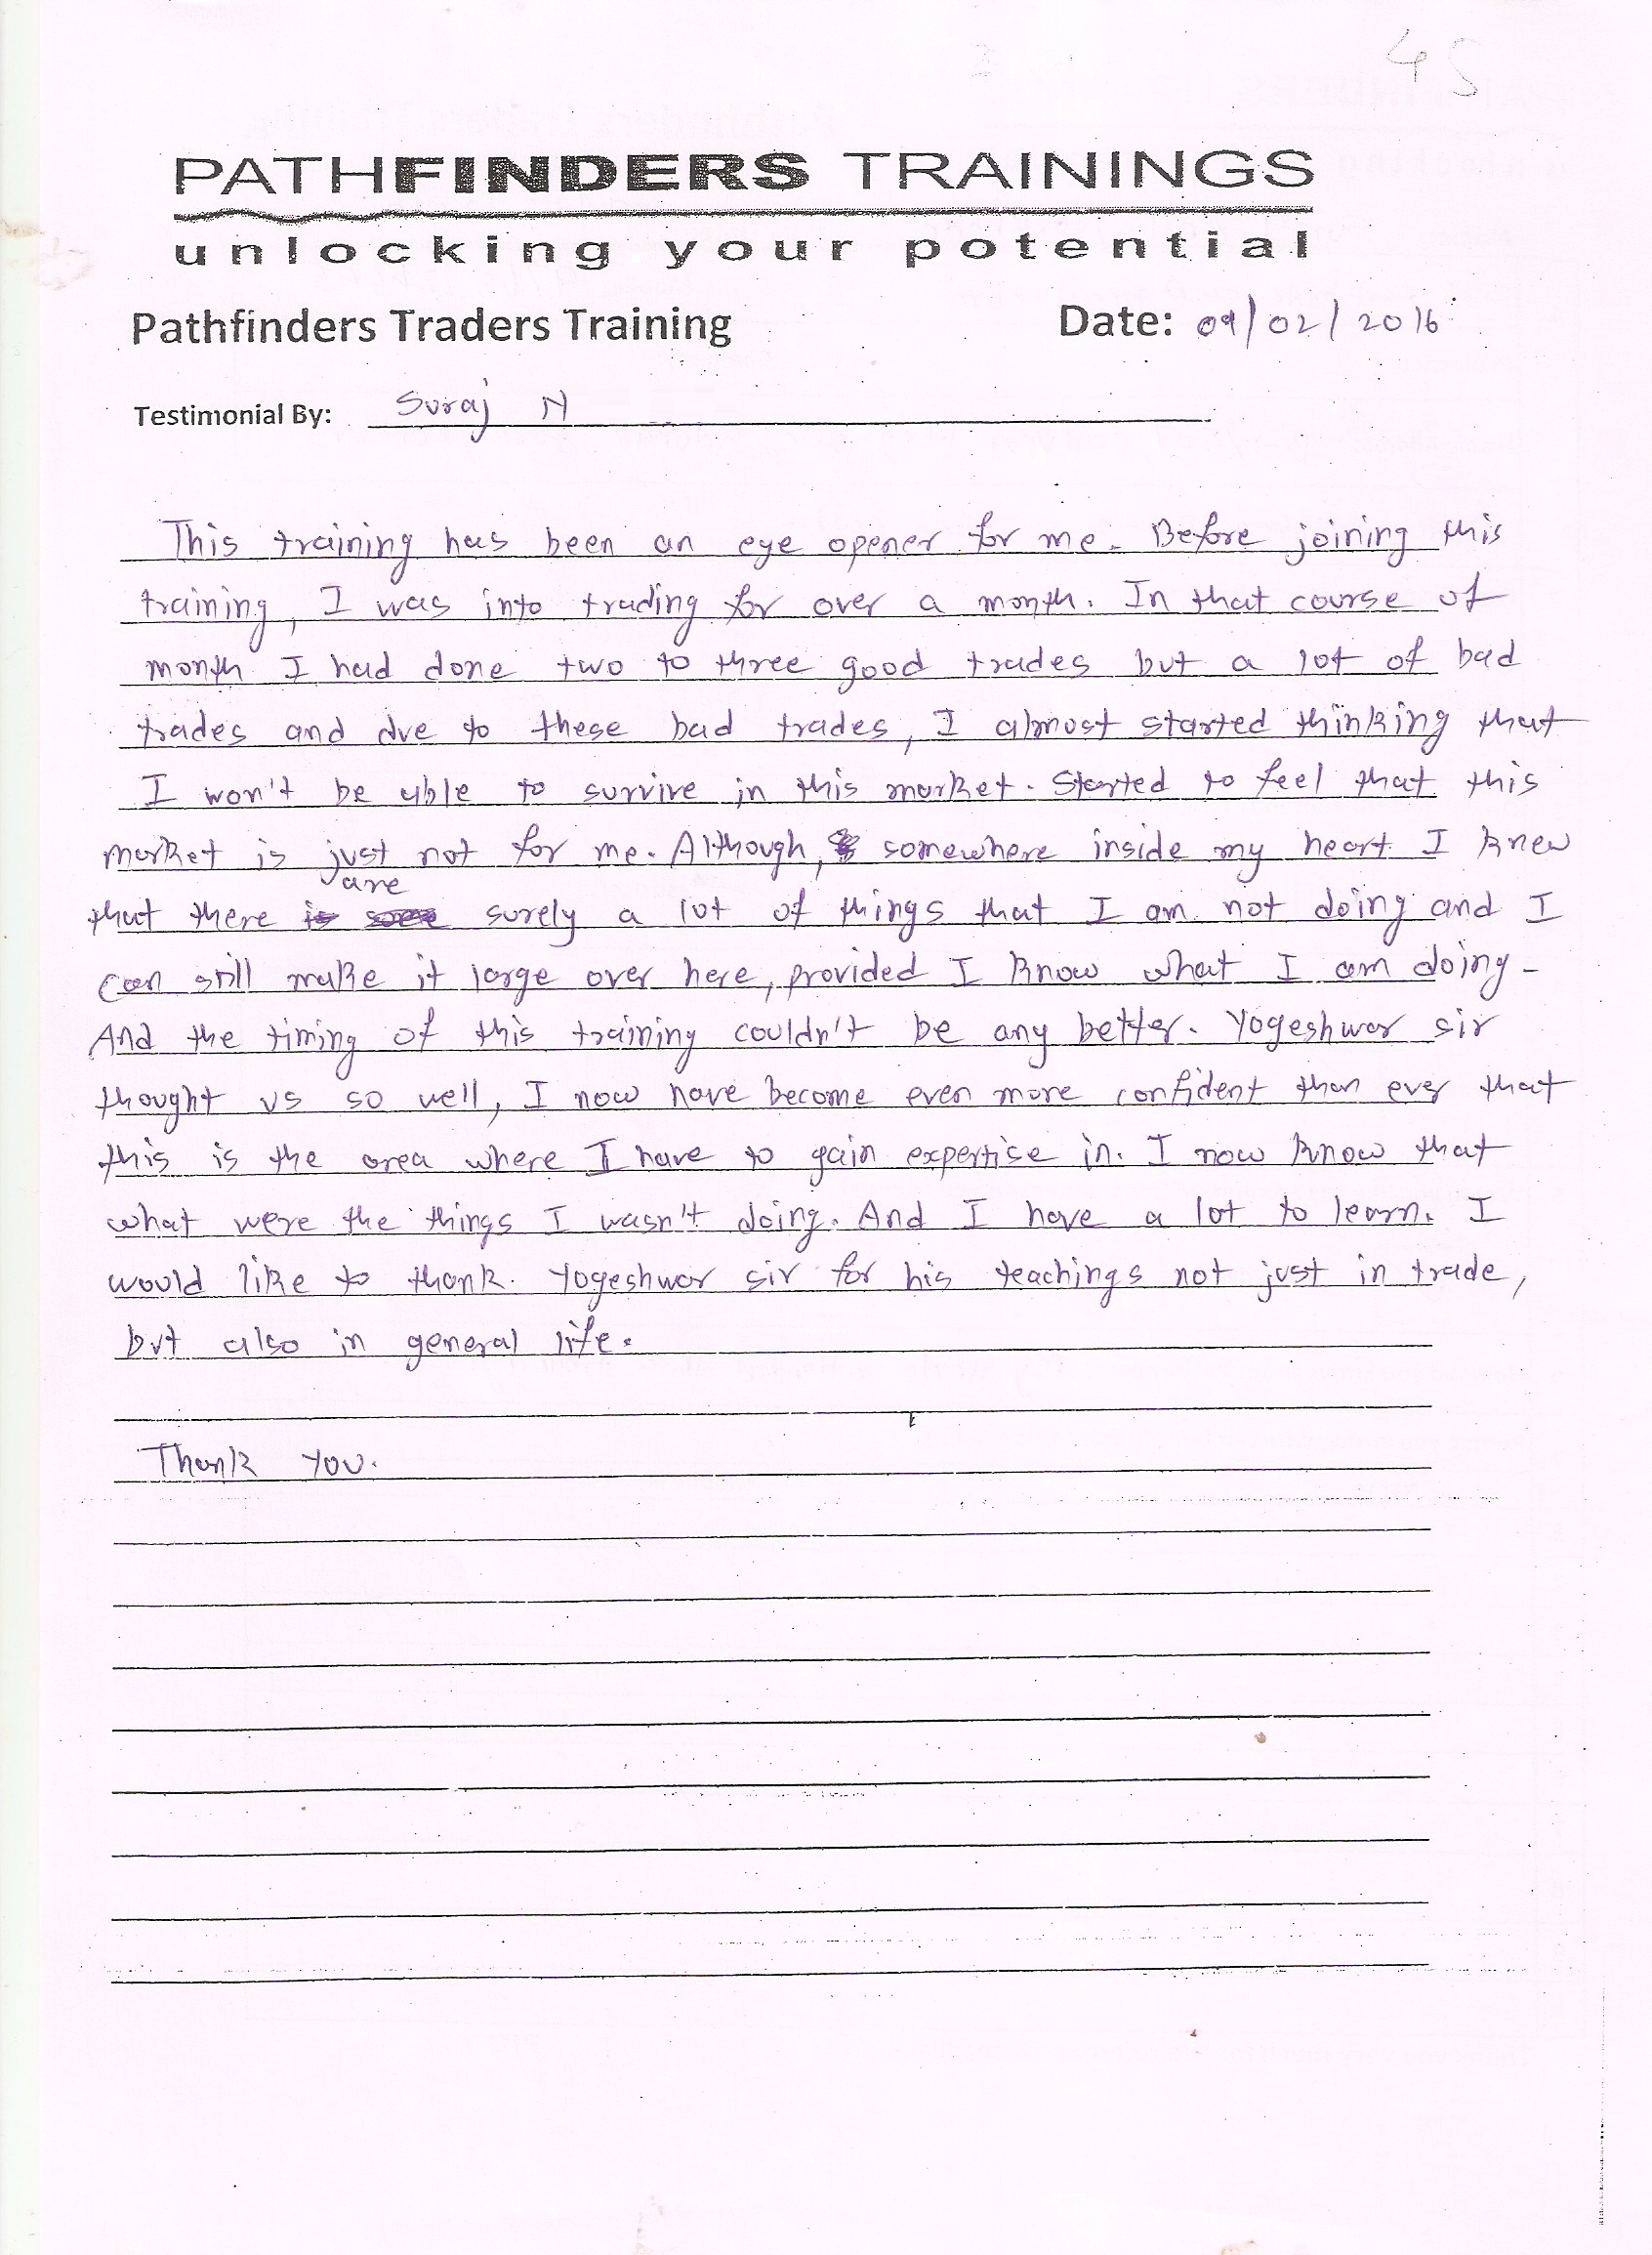 45
PATHFINDERS TRAININGS
unlocking your potential
Pathfinders Traders Training Date: 09/02/2016
Testimonial By: Suraj N
This training has been an eye opener for me. Before joining this
training, I was into trading for over a month. In that course of
month I had done two to three good trades but a lot of bad
trades and due to these bad trades, I almost started thinking that
I won't be able to survive in this market. Started to feel that this
market is just not for me. Although, somewhere inside my heart I knew
that there are surely a lot of things that I am not doing and I
can still make it large over here, provided I know what I am doing.
And the timing of this training couldn't be any better. Yogeshwar sir
thought us so well, I now have become even more confident than ever that
this is the area where I have to gain expertise in. I now know that
what were the things I wasn't doing. And I have a lot to learn. I
would like to thank. Yogeshwar sir for his teachings not just in trade,
but also in general life.
Thank you.